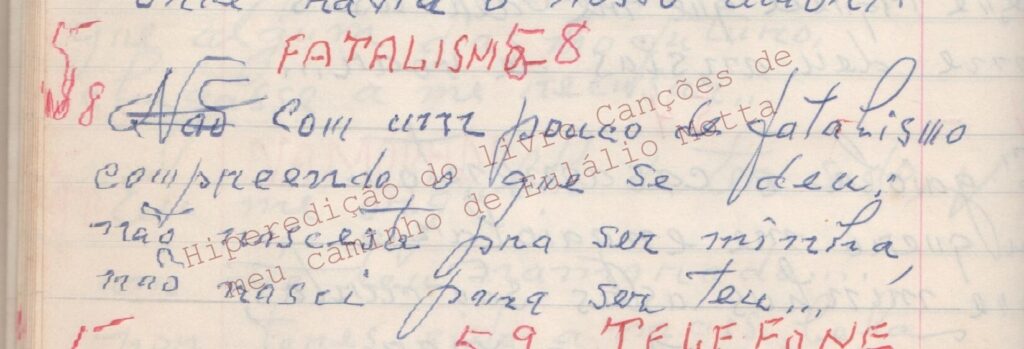 onde havia o nosso
5
FATALISMO 58
58
Não Com um pouco de fatalismo
compreendo o que se deu:
não nasceste pra ser minha
não nasci para ser teu...
59 TELEFONE
Hiperedição do livro Canções de
meu caminho de Eulálio Motta